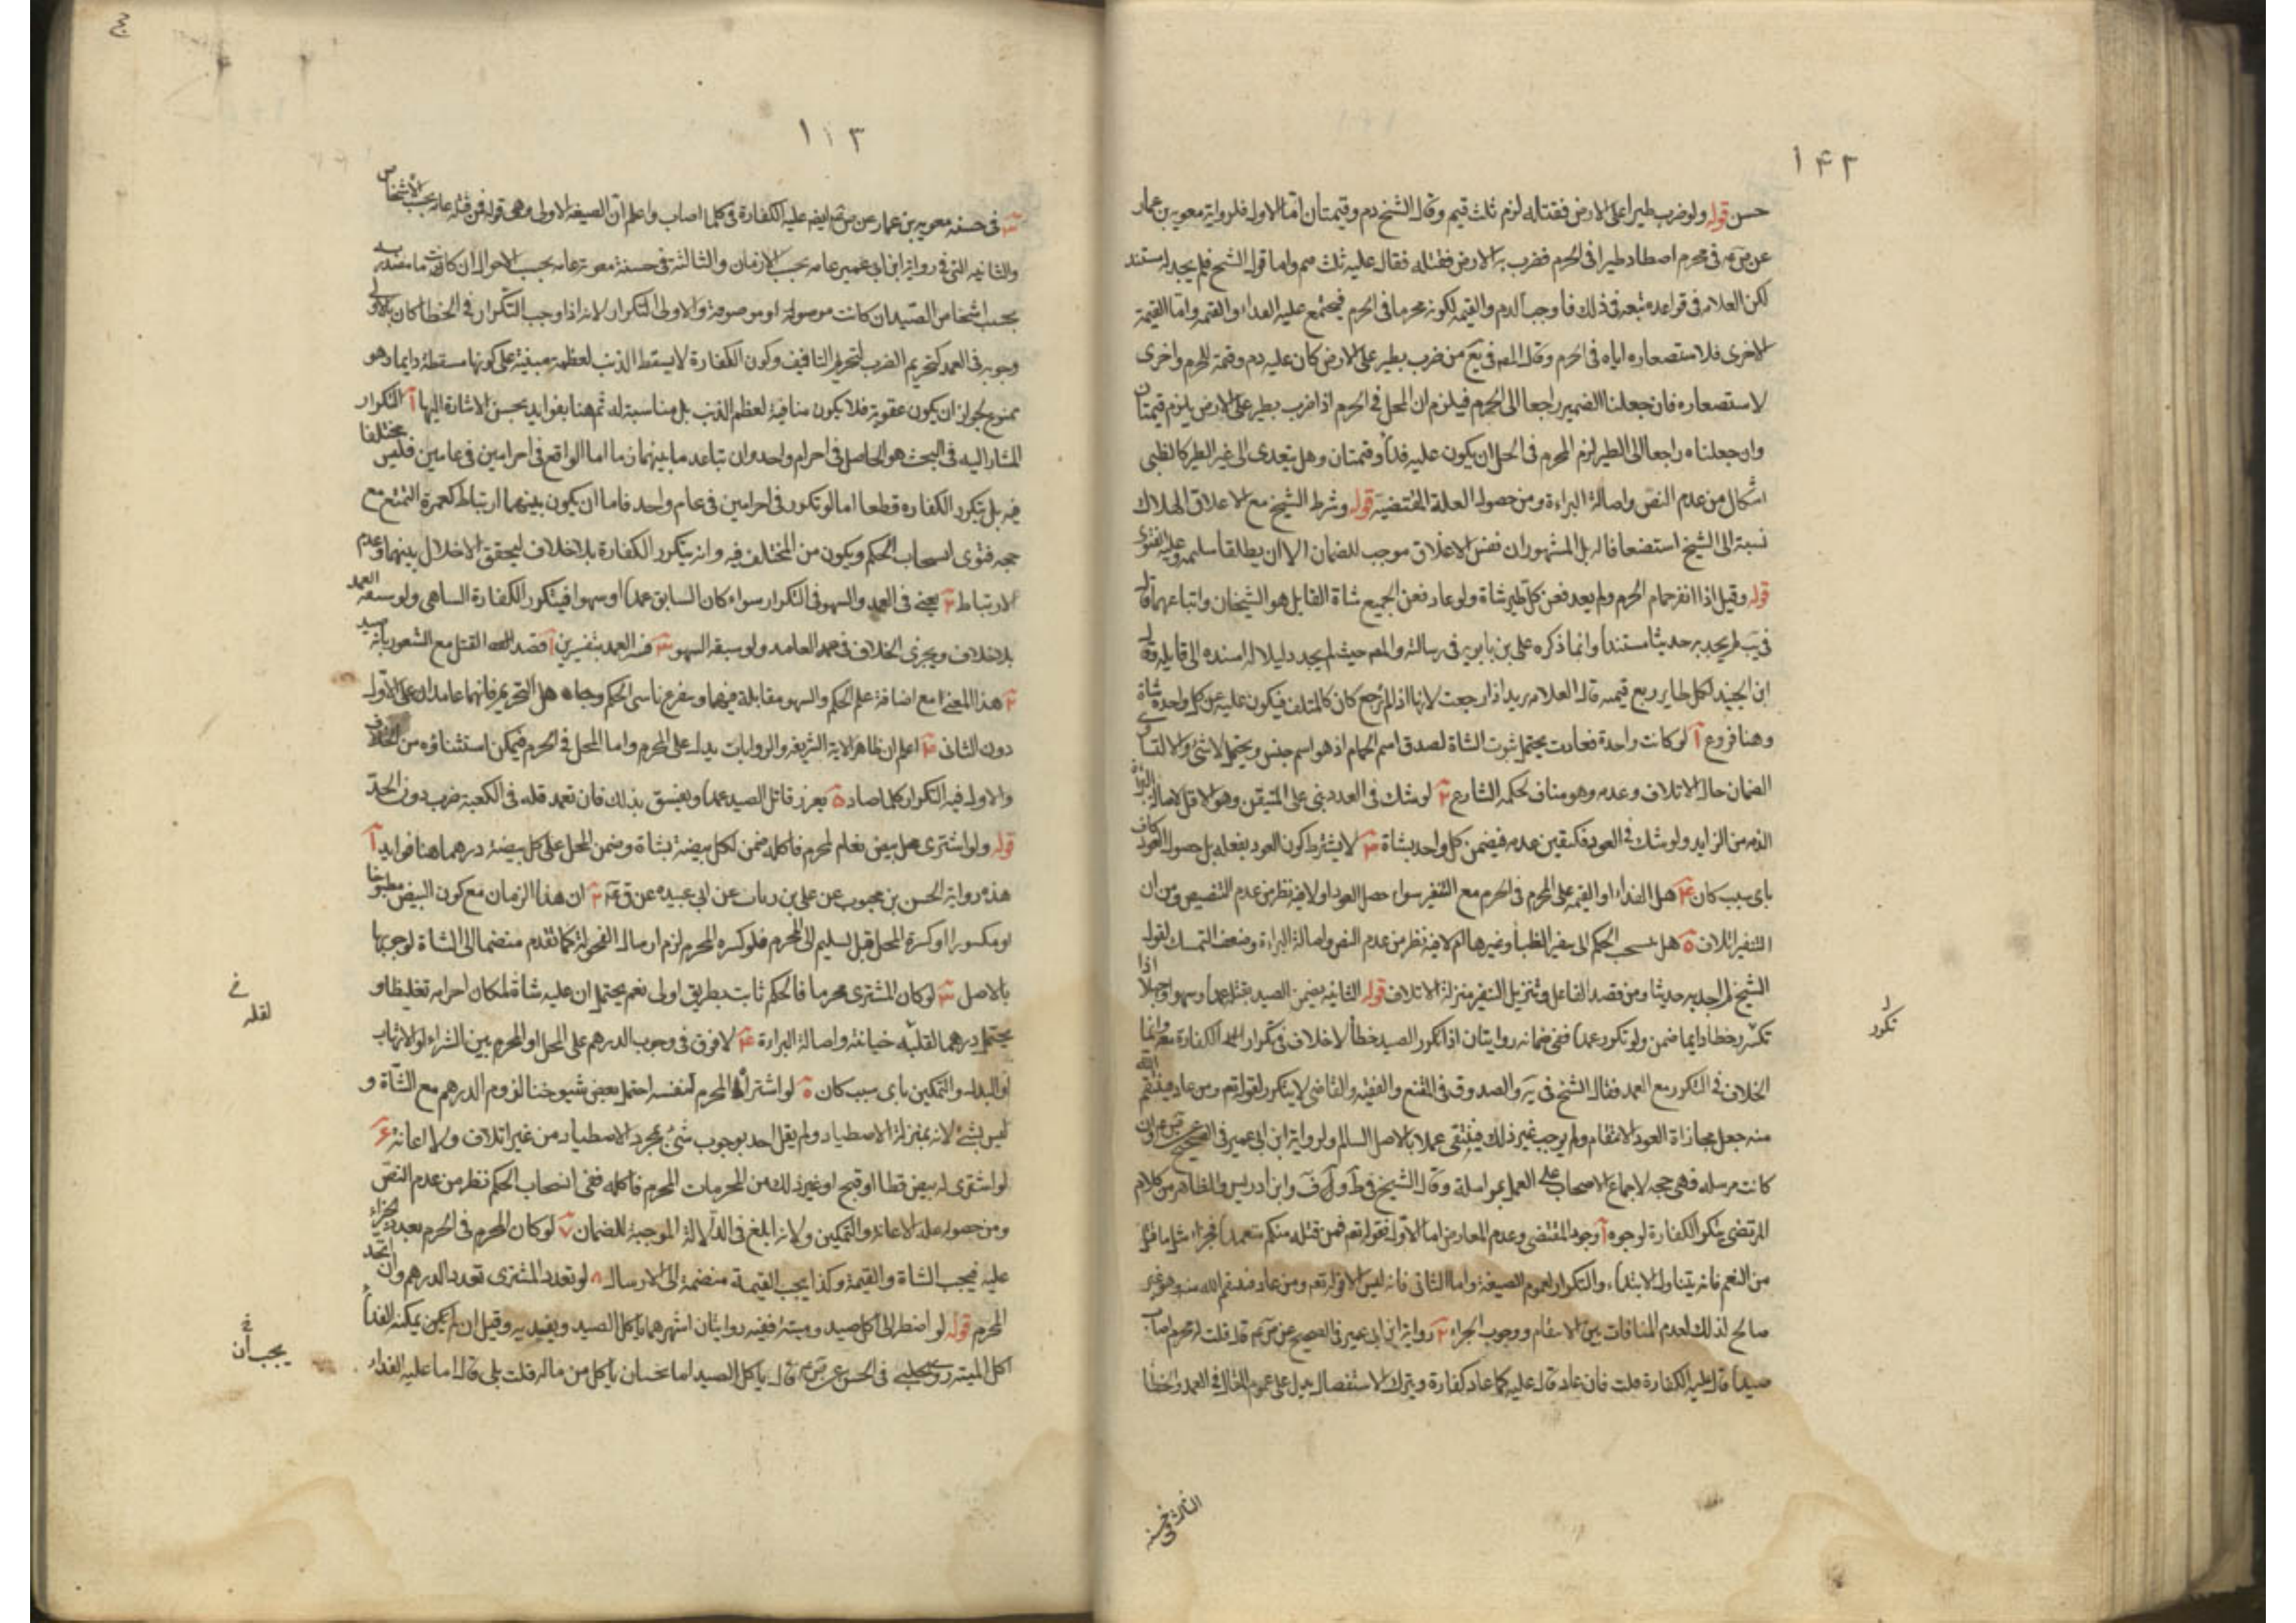 ١٤٢
حسن قوله ولو ضرب طيرا على الارض فقتله لزم ثلث قيم وقال الشيخ دم وقيمتان اما الاول فلرواية معوية بن عمار
في محرم اصطاد طيرا في الحرم فضرب به الارض فقتله فقال عليه ثلث قيم واما قول الشيخ فلم يجد له مستند
لكن العلامه في قواعده تبعه في ذلك فاوجب الدم والقيمه لكونه محرما في الحرم فيجتمع عليه الفداء والقيمه واما القيمة
الاخرى فلاستصغاره اياه في الحرم وقال المص في يع من ضرب بطير على الارض كان عليه دم وقيمة للحرم واخرى
لاستصغاره فان جعلنا الضمير راجعا الى الحرم فيلزم ان المحل في الحرم اذا ضرب بطير على الارض يلزم قيمتان
وان جعلناه راجعا الى الطير لزم المحرم في الحل ان يكون عليه فداء وقيمتان وهل يتعدى الى غير الطير كالظبي
اشكال من عدم النص واصالة البراءة ومن حصول العلة المقتضية قوله وشرط الشيخ مع الاغلاق الهلاك
نسبة الى الشيخ استضعافا له بل المشهور ان نفس الاغلاق موجب للضمان الا ان يطلقها سليمه وعليه الفتوى
قوله وقيل اذا انفر حمام الحرم ولم يعد فعن كل طير شاة ولو عاد فعن الجميع شاة القايل هو الشيخان واتباعهما قال
في يب لم يجد به حديثا مسندا وانما ذكره على بن بابويه في رسالته والمص حيث لم يجد دليلا له اسنده الى قايله وقال
ابن الجنيد لكل طاير ربع قيمه قال العلامه يريد اذا رجعت لانها اذا لم ترجع كان كالمتلف فيكون عليه عن كل واحدة شاة
وهنا فروع ١ لو كانت واحدة فعادت يحتمل ثبوت الشاة لصدق اسم الحمام اذ هو اسم جنس ويحتمل لا شئ والا لتساوى
الضمان حال الاتلاف وعدمه وهو مناف لحكمه الشارع ٢ لو شك في العدد بنى على المتيقن وهو الاقل لاصالة البراة
الذمه من الزايد ولو شك في العود فكتيقن عدمه فيضمن كل واحد بشاة ٣ لا يشترط كون العود بفعله بل حصول العود كاف
باى سبب كان ٤ هل الفداء او القيمه على المحرم في الحرم مع التنفير سواء حصل العود او لا فيه نظر من عدم التنصيص ومن ان
التنفير اتلاف ٥ هل ينسحب الحكم الى تنفير الظباء وغيرها ام لا فيه نظر من عدم النص واصالة البراءة وضعف التمسك لقول
الشيخ لم اجد به حديثا ومن قصد الفاعل وتنزيل التنفير منزلة الاتلاف قوله الثانيه يضمن الصيد بقتله عمدا وسهوا وجهلا اذا
تكرر خطا دايما ضمن ولو تكرر عمدا ففى ضمانه روايتان اذا تكرر الصيد خطأ لا خلاف في تكرار الكفارة وانما
الخلاف في التكرر مع العمد فقال الشيخ في يه والصدوق في المقنع والفقيه والقاضى لا يتكرر لقوله تعم ومن عاد فينتقم الله
منه جعل مجازاة العود الانتقام ولم يوجب غير ذلك فينتفى عملا بالاصل السالم ولرواية ابن ابى عمير في الصحيح وان
كانت مرسله فهى حجه لاجماع الاصحاب على العمل بمراسله وقال الشيخ في ط وف وابن ادريس والظاهر من كلام
المرتضى يتكرر الكفارة لوجوه ١ وجود المقتضى وعدم المعارض اما الاول فقوله تعم فمن قتله منكم متعمدا فجزاء مثل ما قتل
من النعم فانه يتناول الابتداء والتكرار لعموم الصيغة واما الثانى فانه ليس الا قوله تعم ومن عاد فينتقم الله منه وهو غير
صالح لذلك لعدم المنافات بين الانتقام ووجوب الجزاء ٢ رواية ابن ابى عمير في الصحيح قال قلت له محرم اصاب
صيدا قال عليه الكفارة قلت فان عاد قال عليه كلما عاد كفارة وترك الاستفصال يدل على عموم المقال في العمد والخطا
تكرر
الثالث في حسنة
١١٣
٣ في حسنه معويه بن عمار عن ص ايضه عليه الكفارة في كلما اصاب واعلم ان الصيغه الاولى وهى قوله فمن قتله عامه بحسب الاشخاص
والثانيه التى في رواية ابن ابى عمير عامه بحسب الازمان والثالثة في حسنة معوية عامه بحسب الاحوال ان كانت ما مصدريه
بحسب اشخاص الصيد ان كانت موصولة او موصوفة والاولى التكرار لانه اذا وجب التكرار في الخطا كان بالاولى
وجوبه في العمد كتحريم الضرب لتحريم التافيف وكون الكفارة لا يسقط الذنب لعظمه مبنية على كونها مسقطة دايما وهو
ممنوع لجواز ان يكون عقوبة فلا يكون منافية لعظم الذنب بل مناسبة له ثم هنا فوايد يحسن الاشارة اليها ١ التكرار
المشار اليه في البحث هو الحاصل في احرام واحد وان تباعد ما بينهما زمانا اما الواقع في احرامين في عامين فليس مختلفا
فيه بل يتكرر الكفاره قطعا اما لو تكرر في احرامين في عام واحد فاما ان يكون بينهما ارتباط كعمرة التمتع مع
حجه فقوى انسحاب الحكم ويكون من المختلف فيه وانه يتكرر الكفارة بلا خلاف لتحقق الاخلال بينهما وعدم
الارتباط ٢ يجئ في العمد والسهو في التكرار سواء كان السابق عمدا او سهوا فيتكرر الكفارة الساهى ولو سبقه العمد
بلا خلاف ويجرى الخلاف في عمد العامد ولو سبقه السهو ٣ فسر العمد بتفسيرين ١ قصد القتل مع الشعور بانه صيد
٢ هذا المعنى مع اضافة علم الحكم والسهو مقابله فيهما ويتفرع ناسى الحكم وجاهل التحريم فانهما عامدان على الاول
دون الثانى ٤ اعلم ان ظاهر الاية الشريفه والروايات يدل على المحرم واما المحل في الحرم فيمكن استثناؤه من الخلاف
والاولى فيه التكرار كلما صاد ٥ يعزر قاتل الصيد عمدا ويفسق بذلك فان تعمد قتله في الكعبة ضرب دون الحد
قوله ولو اشترى محل بيض نعام لمحرم فاكله ضمن لكل بيضة بشاة وضمن المحل على كل بيضة درهما هنا فوايد ١
هذه رواية الحسن بن محبوب عن على بن رباب عن ابى عبيده ٢ ان هذا الزمان مع كون البيض مطبوخا
او مكسورا او كسره المحل قبل تسليم الى المحرم فلو كسره المحرم لزم ارسال الفحولة كما تقدم منضما الى الشاة لوجوبها
بالاصل ٣ لو كان المشترى محرما فالحكم ثابت بطريق اولى نعم يحتمل ان عليه شاة لمكان احرامه تغليظا و
يحتمل درهما لقلبه خيانته واصالة البراءة ٤ لا فرق في وجوب الدرهم على المحل او المحرم بين الشراء او الاتهاب
او البدل والتمكين باى سبب كان ٥ لو اشتراه المحرم لنفسه احتمل بعض شيوخنا لزوم الدرهم مع الشاة و
ليس بشئ لانه بمنزلة الاصطياد ولم يقل احد بوجوب شئ بمجرد الاصطياد من غير اتلاف ولا اعانة ٦
لو اشترى له بيض قطا او قبج او غير ذلك من المحرمات المحرم فاكله ففى انسحاب الحكم نظر من عدم النص
ومن حصول علة الاعانة والتمكين ولانه ابلغ في الدلالة الموجبة للضمان ٧ لو كان المحرم في الحرم تعدد الجزاء
عليه فيجب الشاة والقيمة وكذا يجب القيمة منضمة الى الارسال ٨ لو تعدد المشترى تعدد الدرهم وان اتحد
المحرم قوله لو اضطر الى اكل صيد وميتة ففيه روايتان اشهرهما ياكل الصيد ويفديه وقيل ان لم يكن يمكنه الفداء
اكل الميته روى الحلبى في الحسن عن ص قال ياكل الصيد اما تحسان ياكل من ماله قلت بلى قال اما عليه الفداء
لقله
يجب ان